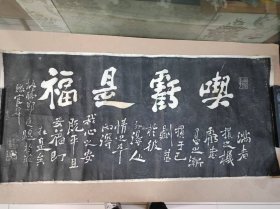 喫虧是福
滿者
損之機
虧者
盈之漸
損于己
則
於彼
外得人
情之平
內得
我心之安
既平且
安福即
在是矣